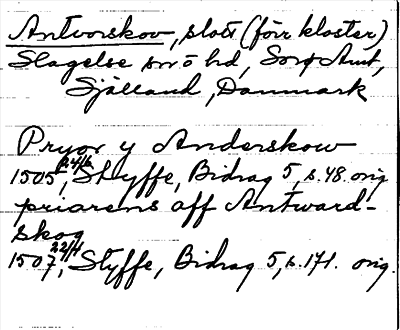 Antvorskov, slott (förr kloster)
Slagelse sn o hd, Sorø Amt,
Själland, Danmark
Pryor y Anderskow
1505 24/6, Styffe, Bidrag 5, s. 48. orig
priorens aff Antward-
skog
1507 22/4, Styffe, Bidrag 5, s. 171. orig.